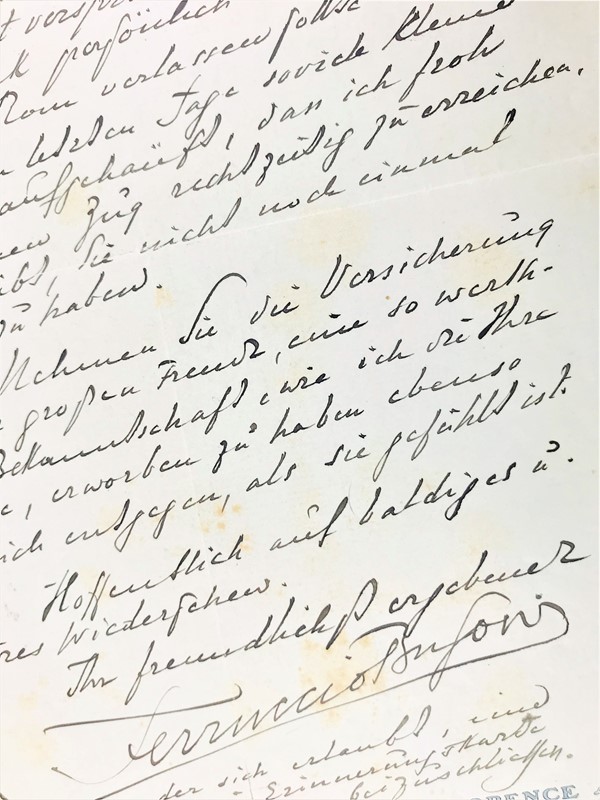 persönlich
Rom verlassen sollte
letzten Tage soviele kleine
aufgehäuft, dass ich froh
Zug rechtzeitig zu erreichen,
Sie nicht noch einmal
zu haben.
Nehmen Sie die Versicherung
großen Freude, eine so werth-
Bekanntschaft wie ich die Ihre
, erworben zu haben ebenso
entgegen, als sie gefühlt ist.
Hoffentlich auf baldiges u.
Wiedersehen.
Ihr freundlichst ergebener
Ferruccio Busoni
der sich erlaubt, eine
Erinnerungskarte
beizuschliessen.